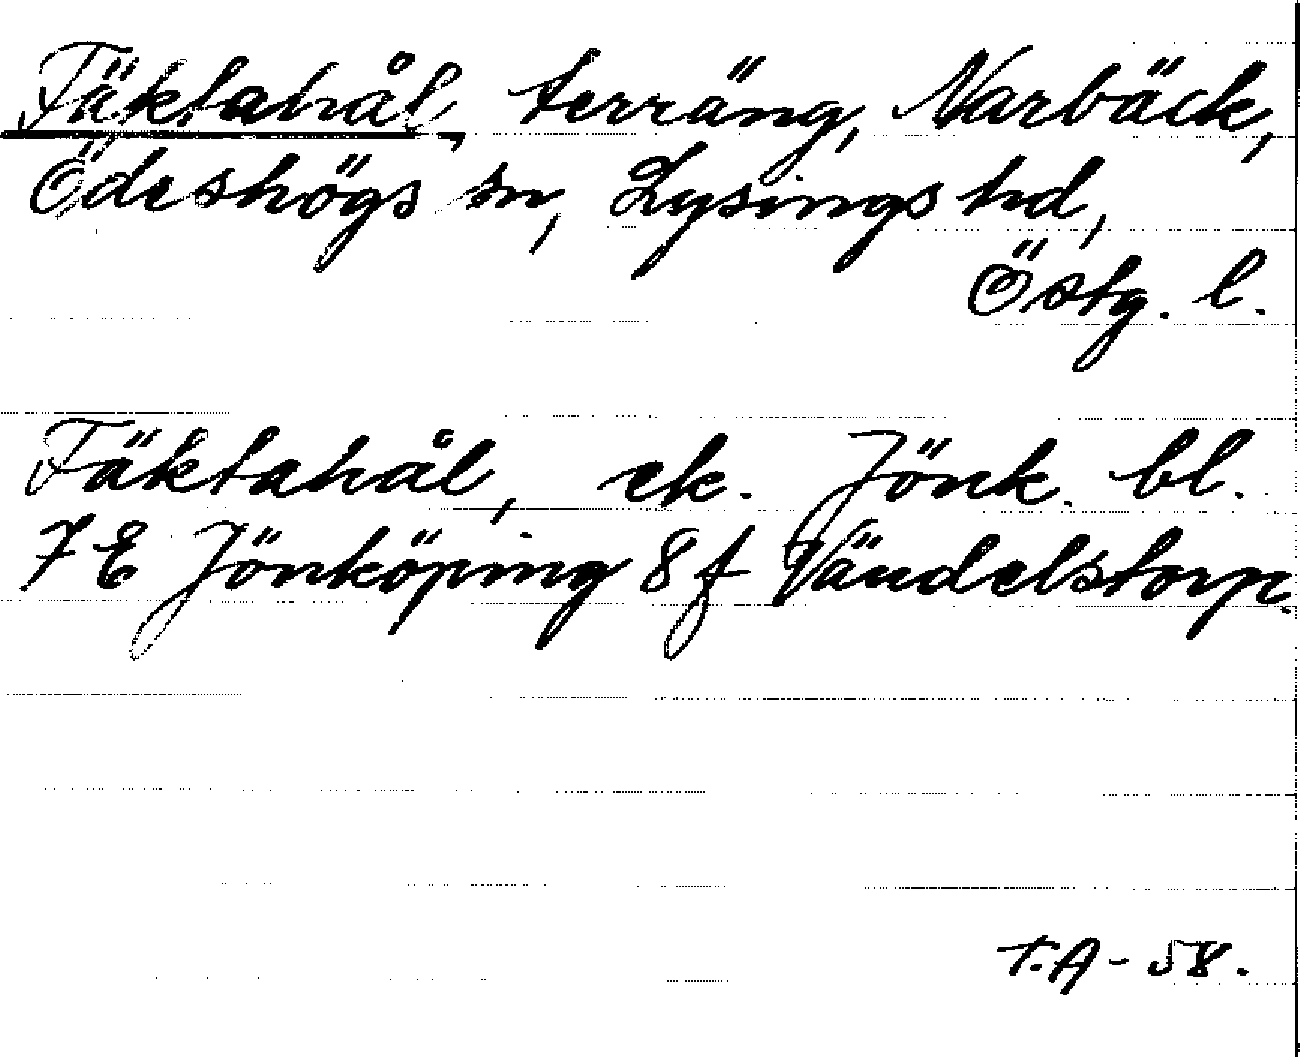 Täktahål, terräng, Narbäck,
Ödeshögs sn, Lysings hd,
Östg. l.
Täktahål, ek. Jönk. bl.
7E Jönköping 8f Vändelstorp.
T.A - 58.